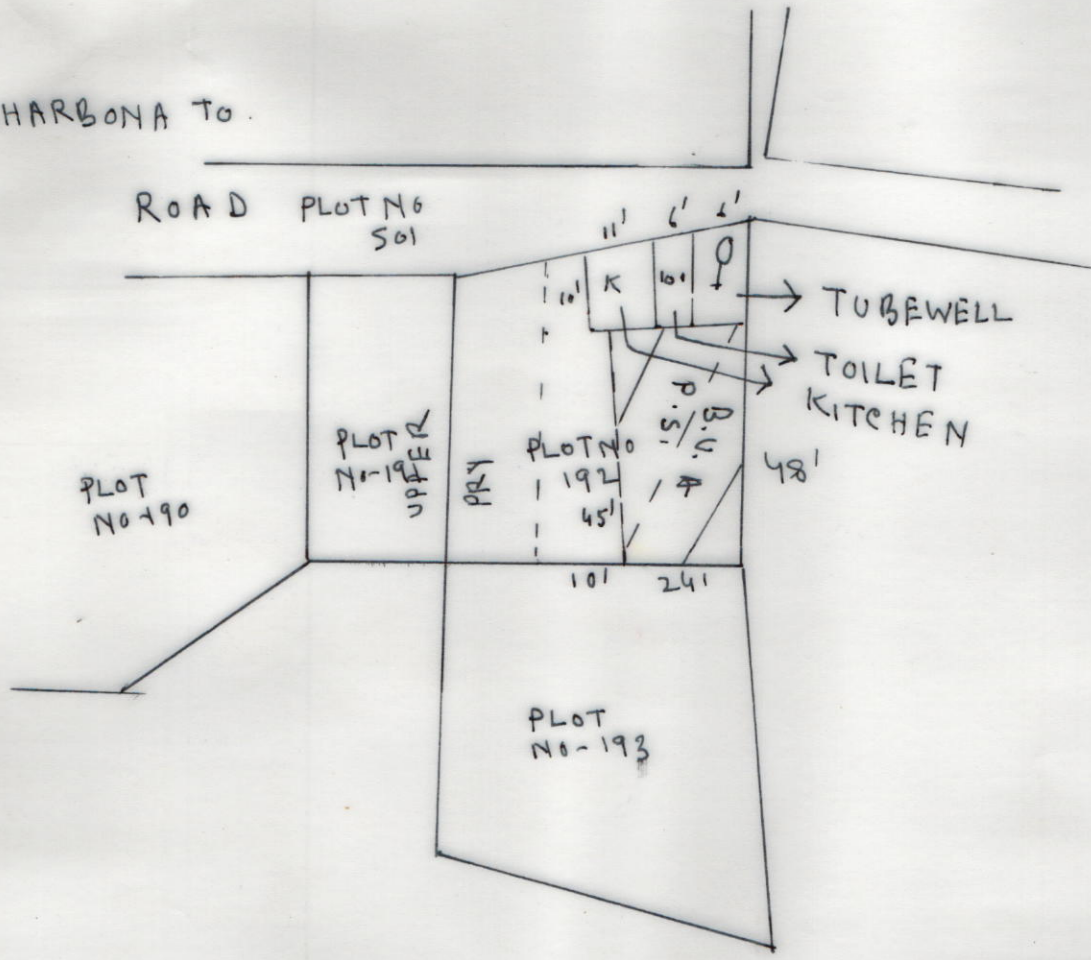 HARBONA To.
ROAD PLOT NO
501
11' 6' 6'
10' K 10'
TUBEWELL
TOILET
KITCHEN
PLOT
NO-190
PLOT
NO-19
UPPER
PRY
PLOT NO
192
45'
B.U.
P.S.
48'
10' 24'
PLOT
NO-193